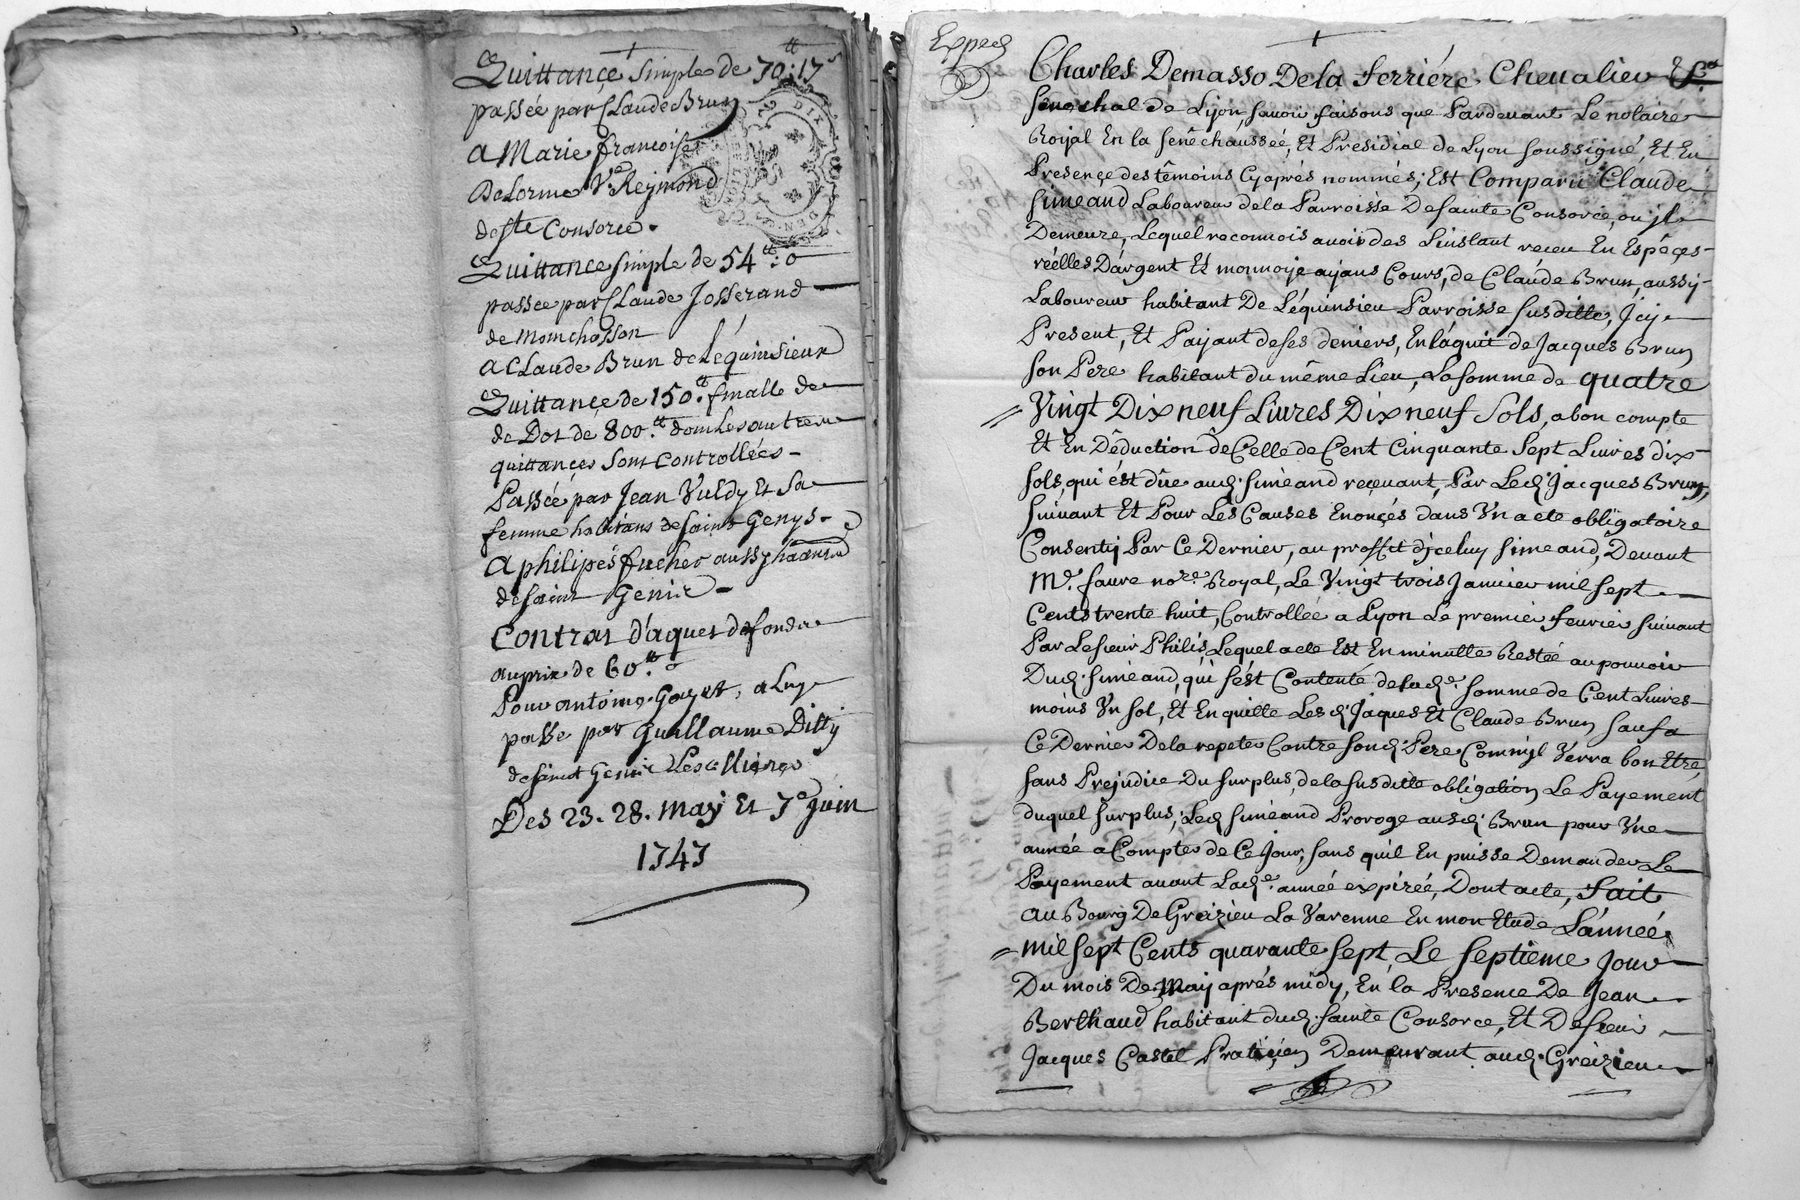 Quittançe simple de 70.tt 17s
passée par Claude Brun
a Marie françoise
Delorme Ve Rejmond
de ste Consorce.
Quittance simple de 54tt: 0
passee par Claude Josserand
de Monchosson
a Claude Brun de Lequinsieux
Quittançe de 150.tt finalle de
de Dot de 800.tt dont les autres
quittançes sont Controllées
Passée par Jean Vuldy Et Sa
femme habitans de saint Genys
a philipes fucher aussy
de saint Genis
Contrat d'aquet de fonds
au prix de 60tt. 0
Pour antoine Goyet, a Luy
passe par Guillaume Ditty
de saint Genis Les
Des 23. 28. may Et 7e juin
1747
DIX
DEN
Exped
Charles Demasso De la ferriére Chevalier
senechal de Lyon, savoir faisons que Pardevant Le notaire
Roijal En la senêchaussée, Et Présidial de Lyon soussigné, Et En
Presençe des têmoins Cyaprés nommés; Est Comparu Claude
Siméand Laboureur de la Parroisse De sainte Consorce, ou jl
Demeure, Lequel reconnois avoir des Linstant reçeu En Espêçes
réelles D'argent Et monnoye ayans Cours, de Claude Brun, aussy
Laboureur habitant De Léquinsieu Parroisse susditte, Jcy
Present, Et Païjant de ses deniers, En láquit de Jacques Brun
son Pere habitant du même Lieu, La somme de quatre
Vingt Dix neuf Livres Dix neuf Sols, a bon compte
Et En Dêduction de Celle de Cent Cinquante Sept Livres dix
sols, qui ést dûe aud. siméand reçevant, Par Led. Jacques Brun,
suivant Et Pour Les Causes Enonçés dans Vn acte obligatoire
Consentij Par Ce Dernier, au proffit djceluy simeand, Devant
Me. faure nore. Royal, Le Vingt trois Janvier mil sept
Cents trente huit, Controllée a Lyon Le premier fevrier suivant
Par Le sieur Philis, Lequel acte Est En minutte Restée au pouvoir
Dud. siméand, qui s'ést Contenté de lade. somme de Cent Livres
moins Vn sol, Et En quitte Lesd. Jaques Et Claude Brun sauf a
Ce Dernier De la repeter Contre sond. Pere Comm'jl Verra bon Etre,
sans Prejudice Du surplus, de la susditte obligation Le Payement
duquel surplus, Led. siméand Proroge ausd. Brun pour Vne
année a Compter de Ce Jour, sans qu'il En puisse Demander Le
Payement avant Lade. année expirée, Dont acte, Fait
au Bourg De Greizieu La Varenne En mon Etude L'année
mil sept Cents quarante sept Le septieme jour
Du mois De May aprés midy, En la Presence De Jean
Berthaud habitant dud. sainte Consorce, Et De sieur
Jacques Castel Pratiçien Demeurant aud. Greizieu